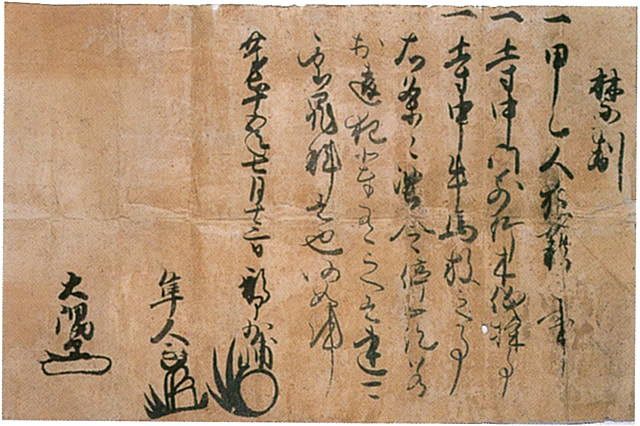 禁制
一甲乙人狼藉事
一寺中門前竹木伐採事
一寺中牛馬放之事
右条々堅令停止訖若
於違犯輩有之者速可
処罪科者也仍如件
十五年七月十三日
隼人正
大隅守